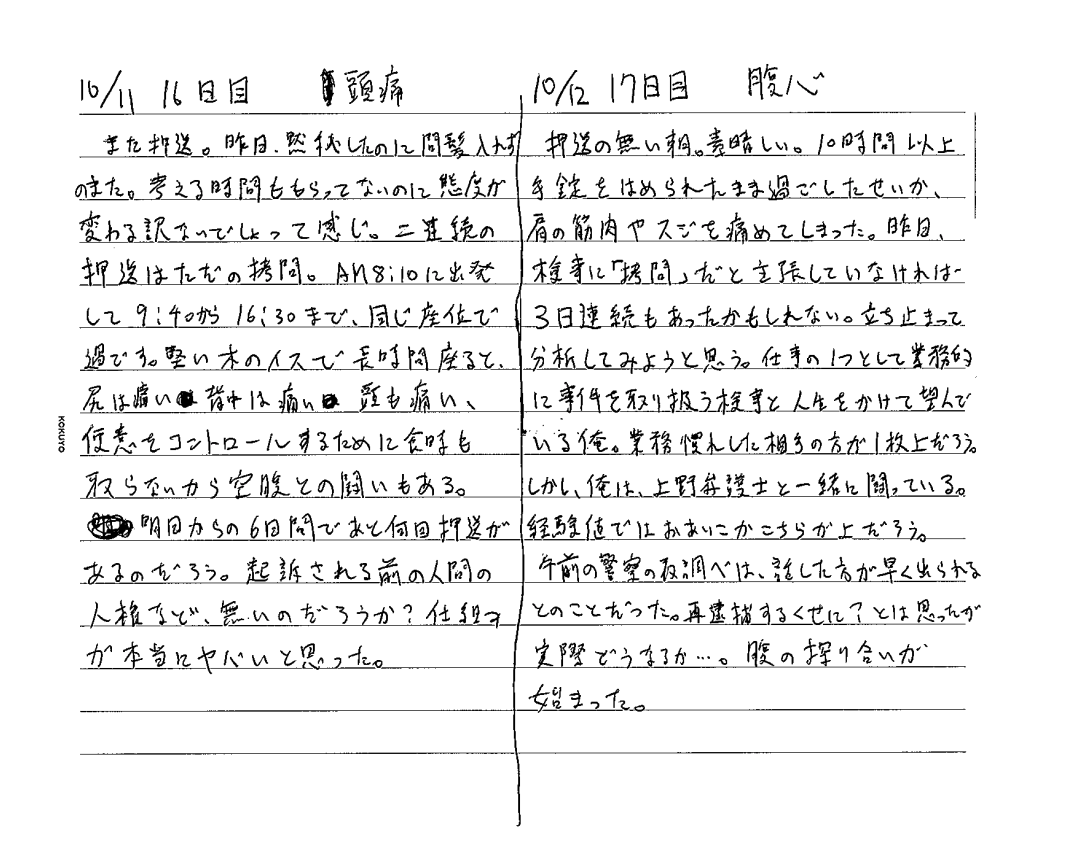 10/11 16日目 頭痛
また押送。昨日、黙秘したのに間髪入れず
のまた。考える時間ももらってないのに態度が
変わる訳ないでしょって感じ。二連続の
押送はただの拷問。AM8:10に出発
して9:40から16:30まで、同じ座位で
過です。堅い木のイスで長時間座ると、
尻は痛い 背中は痛い 頭も痛い、
便意をコントロールするために食事も
取らないから空腹との闘いもある。
明日からの6日間であと何回押送が
あるのだろう。起訴される前の人間の
人権など、無いのだろうか?仕組み
が本当にヤバいと思った。
10/12 17日目 腹心
押送の無い朝。素晴しい。10時間以上
手錠をはめられたまま過ごしたせいか、
肩の筋肉やスジを痛めてしまった。昨日、
検事に「拷問」だと主張していなければ
3日連続もあったかもしれない。立ち止まって
分析してみようと思う。仕事の1つとして業務的
に事件を取り扱う検事と人生をかけて望んで
いる俺。業務慣れした相手の方が1枚上だろう。
しかし、俺は、上野弁護士と一緒に闘っている。
経験値ではおあいこかこちらが上だろう。
午前の警察の取調べは、話した方が早く出られる
とのことだった。再逮捕するくせに?とは思ったが
実際どうなるか…。腹の探り合いが
始まった。
KOKUYO